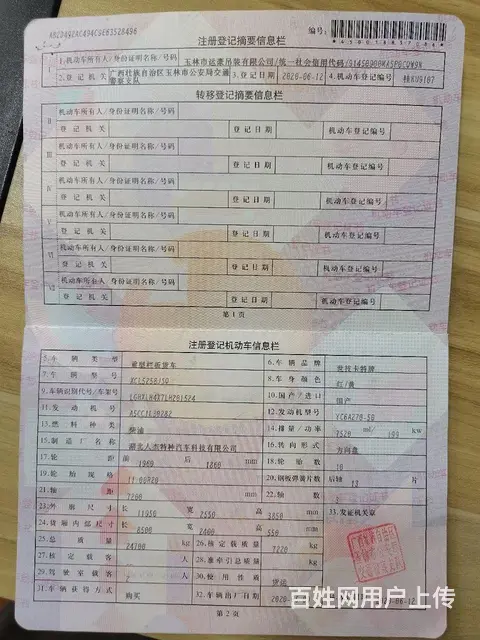 注册登记摘要信息栏
编号:
1.机动车所有人/身份证明名称/号码 玉林市远豪吊装有限公司/统一社会信用代码/
2.登记机关 广西壮族自治区玉林市公安局交通警察支队 3.登记日期 2020-06-12 4.机动车登记编号 桂KU9107
转移登记摘要信息栏
II 机动车所有人/身份证明名称/号码
登记机关 登记日期 机动车登记编号
III 机动车所有人/身份证明名称/号码
登记机关 登记日期 机动车登记编号
IV 机动车所有人/身份证明名称/号码
登记机关 登记日期 机动车登记编号
V 机动车所有人/身份证明名称/号码
登记机关 登记日期 机动车登记编号
VI 机动车所有人/身份证明名称/号码
登记机关 登记日期 机动车登记编号
VII 机动车所有人/身份证明名称/号码
登记机关 登记日期 机动车登记编号
第1页
注册登记机动车信息栏
5.车辆类型 重型栏板货车 6.车辆品牌
7.车辆型号 8.车身颜色 红/黄
9.车辆识别代号/车架号 10.国产/进口 国产
11.发动机号 12.发动机型号 YC6A270-50
13.燃料种类 柴油 14.排量/功率 7520 ml/ 199 kw
15.制造厂名称 湖北人杰特种汽车科技有限公司 16.转向形式 方向盘
17.轮距 前 1960 后 1860 mm 18.轮胎数 10
19.轮胎规格 11.00R20 20.钢板弹簧片数 后轴 13 片
21.轴距 7200 mm 22.轴数 3
23.外廓尺寸 长 11950 宽 2550 高 3850 mm 33.发证机关章
24.货厢内部尺寸 长 8500 宽 2400 高 550 mm
25.总质量 24700 kg 26.核定载质量 7220 kg
27.核定载客 人 28.准牵引总质量 kg
29.驾驶室载客 人 30.使用性质 货运
31.车辆获得方式 购买 32.车辆出厂日期 2020-
第2页
百姓网用户上传